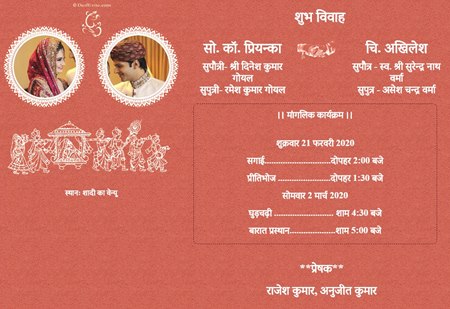 © DesiEvite.com
स्थान: शादी का वेन्यु
शुभ विवाह
सो. कॉ. प्रियन्का
सुपौत्री- श्री दिनेश कुमार
गोयल
सुपुत्री- रमेश कुमार गोयल
चि. अखिलेश
सुपौत्र - स्व. श्री सुरेन्द्र नाथ
वर्मा
सुपुत्र - असेश चन्द्र वर्मा
।। मांगलिक कार्यक्रम ।।
शुक्रवार 21 फरवरी 2020
सगाई.............................दोपहर 2:00 बजे
प्रीतिभोज .......................दोपहर 1:30 बजे
सोमवार 2 मार्च 2020
घुड़चढ़ी ......................... शाम 4:30 बजे
बारात प्रस्थान................... शाम 5:00 बजे
**प्रेषक**
राजेश कुमार, अनुजीत कुमार